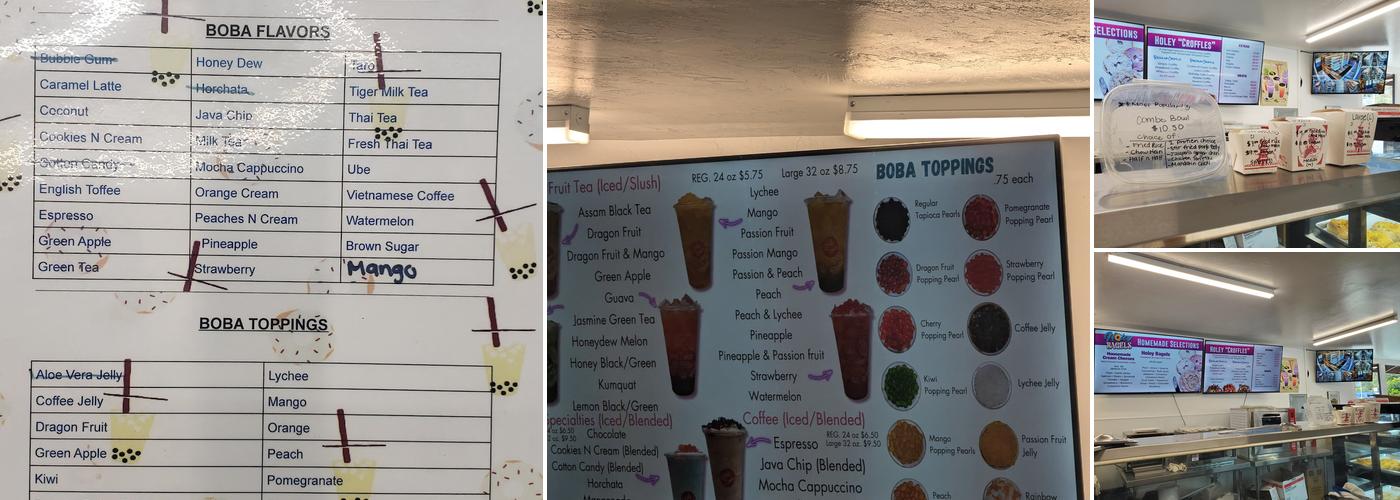 BOBA FLAVORS
Bubble Gum Honey Dew Taro
Caramel Latte Horchata Tiger Milk Tea
Coconut Java Chip Thai Tea
Cookies N Cream Milk Tea Fresh Thai Tea
Cotton Candy Mocha Cappuccino Ube
English Toffee Orange Cream Vietnamese Coffee
Espresso Peaches N Cream Watermelon
Green Apple Pineapple Brown Sugar
Green Tea Strawberry Mango
BOBA TOPPINGS
Aloe Vera Jelly Lychee
Coffee Jelly Mango
Dragon Fruit Orange
Green Apple Peach
Kiwi Pomegranate
Fruit Tea (Iced/Slush) REG. 24 oz $5.75 Large 32 oz $8.75
Assam Black Tea
Dragon Fruit
Dragon Fruit & Mango
Green Apple
Guava
Jasmine Green Tea
Honeydew Melon
Honey Black/Green
Kumquat
Lemon Black/Green
Lychee
Mango
Passion Fruit
Passion Mango
Passion & Peach
Peach
Peach & Lychee
Pineapple
Pineapple & Passion fruit
Strawberry
Watermelon
BOBA TOPPINGS
.75 each
Regular
Tapioca Pearls
Pomegranate
Popping Pearl
Dragon Fruit
Popping Pearl
Strawberry
Popping Pearl
Cherry
Popping Pearl
Coffee Jelly
Kiwi
Popping Pearl
Lychee Jelly
Mango
Popping Pearls
Passion Fruit
Jelly
Peach
Rainbow
pecialties (Iced/Blended)
oz $6.50
oz. $9.50
Chocolate
Cookies N Cream (Blended)
Cotton Candy (Blended)
Horchata
Coffee (Iced/Blended)
REG. 24 oz $6.50
Large 32 oz. $9.50
Espresso
Java Chip (Blended)
Mocha Cappuccino
SELECTIONS
HOLEY "CROFFLES"
Combo Bowl
$10.50
Choice of
Fried Rice
Chow Mein
Half n Half
1 protein choice
BAGELS
Homemade
Cream Cheeses
HOMEMADE SELECTIONS
Holey Bagels
HOLEY "CROFFLES"